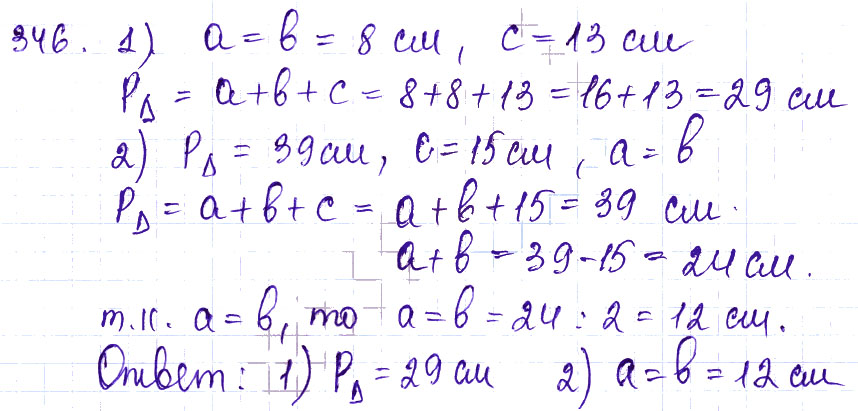 346. 1) a = b = 8 см, c = 13 см
P△ = a + b + c = 8 + 8 + 13 = 16 + 13 = 29 см
2) P△ = 39 см, c = 15 см, a = b
P△ = a + b + c = a + b + 15 = 39 см.
a + b = 39 - 15 = 24 см.
т.к. a = b, то a = b = 24 : 2 = 12 см.
Ответ: 1) P△ = 29 см 2) a = b = 12 см